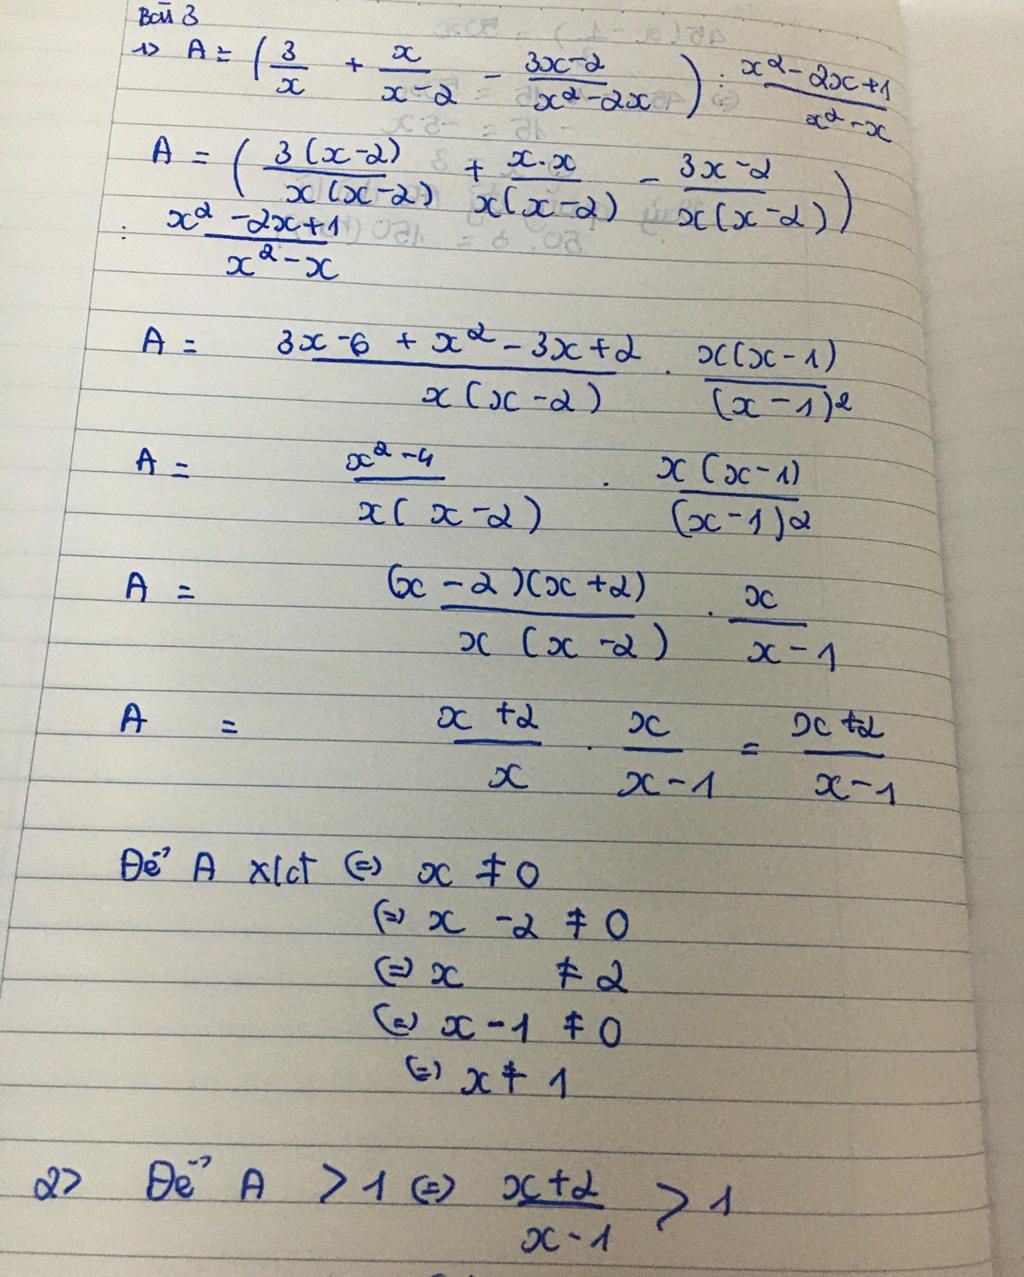 Bài 3
1> A = (3/x + x/x-2 - 3x-2/x²-2x) : x²-2x+1/x²-x
A = (3(x-2)/x(x-2) + x.x/x(x-2) - 3x-2/x(x-2))
: x²-2x+1/x²-x
A = 3x-6+x²-3x+2/x(x-2) . x(x-1)/(x-1)2
A = x²-4/x(x-2) . x(x-1)/(x-1)2
A = (x-2)(x+2)/x(x-2) . x/x-1
A = x+2/x . x/x-1 = x+2/x-1
Để A xđ <=> x ≠ 0
<=> x - 2 ≠ 0
<=> x ≠ 2
<=> x - 1 ≠ 0
<=> x ≠ 1
2> Để A > 1 <=> x+2/x-1 > 1